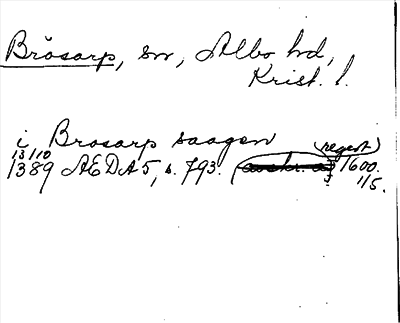 Brösarp, sn, Albo hd,
Krist. l.
i Brosarp saagen
13/10 (regest)
1389 ÆDA 5, s. 793. 1600.
1/5.